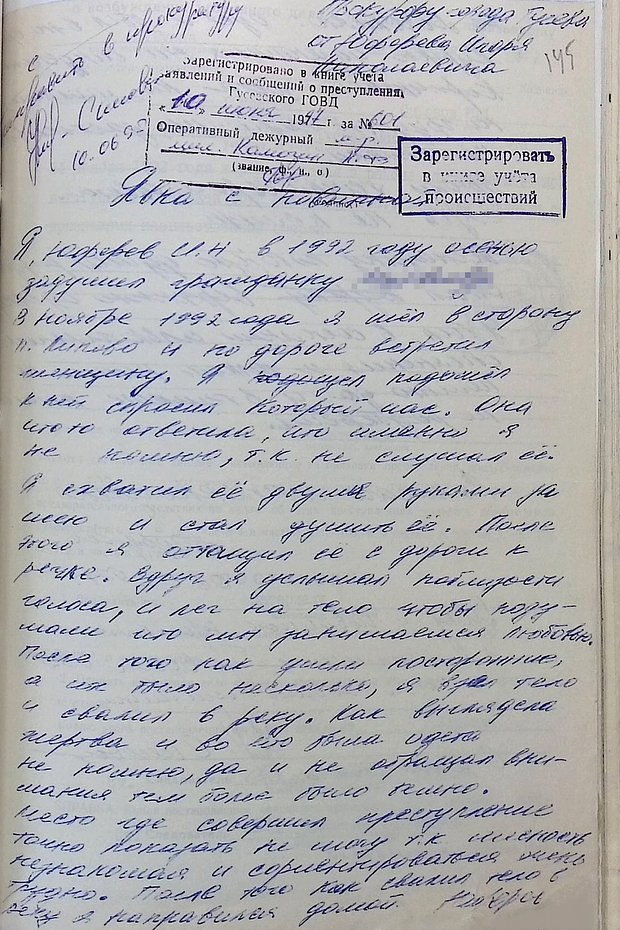 Прокурору города Гусева
от Юферева Игоря
Николаевича
145
направить в прокуратуру
10.06.97
Зарегистрировано в книге учета
заявлений и сообщений о преступлениях
Гусевского ГОВД
„10" июня 1997 г. за № 601
Оперативный дежурный м-р
мил.
(звание, ф., и., о)
Зарегистрировать
в книге учёта
происшествий
Явка с повинной
Я, Юферев И.Н в 1992 году осенью
задушил гражданку
В ноябре 1992 года я шёл в сторону
п. Липово и по дороге встретил
женщину. Я подошёл
к ней спросил который час. Она
что-то ответила, что именно я
не помню, т.к. не слушал её.
Я схватил её двумя руками за
шею и стал душить её. После
этого я оттащил её с дороги к
речке. Вдруг я услышал поблизости
голоса, и лег на тело чтобы поду-
мали что мы занимаемся любовью.
После того как ушли посторонние,
а их было несколько, я взял тело
и свалил в реку. Как выглядела
жертва и во что была одета
не помню, да и не обращал вни-
мания тем более было темно.
Место где совершил преступление
точно показать не могу т.к местность
незнакомая и сориентироваться мне
трудно. После того как свалил тело в
реку я направился домой. Юферев